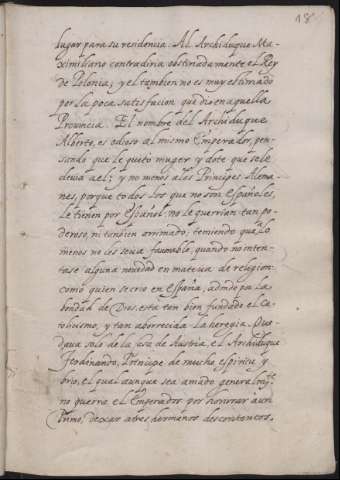 18
lugar para su residencia. Al Archiduque Ma-
ximiliano contradiria obstinadamente el Rey
de Polonia; y el tambien no es muy estimado
por la poca satisfacion que dio en aquella
Prouincia. El nombre del Archiduque
Alberto, es odioso al mismo Emperador, pen-
sando que le quitó muger y dote que se le
deuia a el; y no menos a los Principes Alema-
nes, porque todos los que no son Españoles,
le tienen por español: no le querrian tan po-
deroso, ni tanbien arrimado, temiendo que a lo
menos no les seria fauorable, quando no inten-
tase alguna nouedad en materia de religion:
como quien se crio en España, adonde por la
bondad de Dios, esta tan bien fundado el Ca-
tolicismo, y tan aborrecida la heregia. Que-
daua solo de la casa de Austria, el Archiduque
Ferdenando, Principe de mucho espiritu y
brio, el qual aunque sea amado generalmte
no querra el Emperador por honrrar a un
Primo, dexar a tres hermanos descontentos.